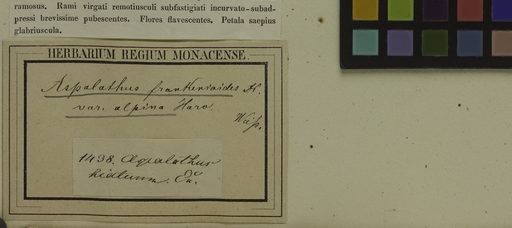 ramosus. Rami virgati remotiusculi subfastigiati incurvato-subad-
pressi brevissime pubescentes. Flores flavescentes. Petala saepius
glabriuscula.
HERBARIUM REGIUM MONACENSE.
Aspalathus frankenioides
var. alpina Harv.
1498. Aspalathus